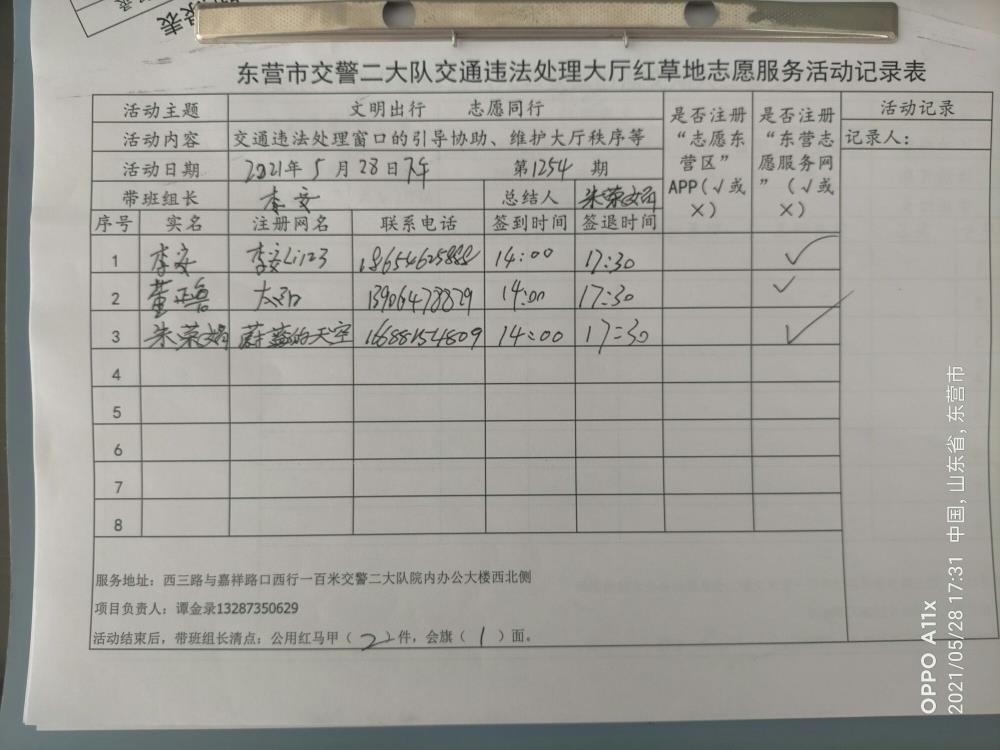 录表
东营市交警二大队交通违法处理大厅红草地志愿服务活动记录表
活动主题 文明出行 志愿同行 是否注册“志愿东营区”APP(√或×) 是否注册“东营志愿服务网”(√或×) 活动记录
活动内容 交通违法处理窗口的引导协助、维护大厅秩序等 记录人：
活动日期 2021年5月28日下午 第1254期
带班组长 李安 总结人 朱荣娟
序号 实名 注册网名 联系电话 签到时间 签退时间
1 李安 李安Li123 18654625888 14:00 17:30 √
2 董正鲁 太阳 13906478829 14:00 17:30 √
3 朱荣娟 蔚蓝的天空 16688154809 14:00 17:30 √
4
5
6
7
8
服务地址：西三路与嘉祥路口西行一百米交警二大队院内办公大楼西北侧
项目负责人：谭金录13287350629
活动结束后，带班组长清点：公用红马甲（2）件，会旗（1）面。
OPPO A11x
2021/05/28 17:31 中国, 山东省, 东营市